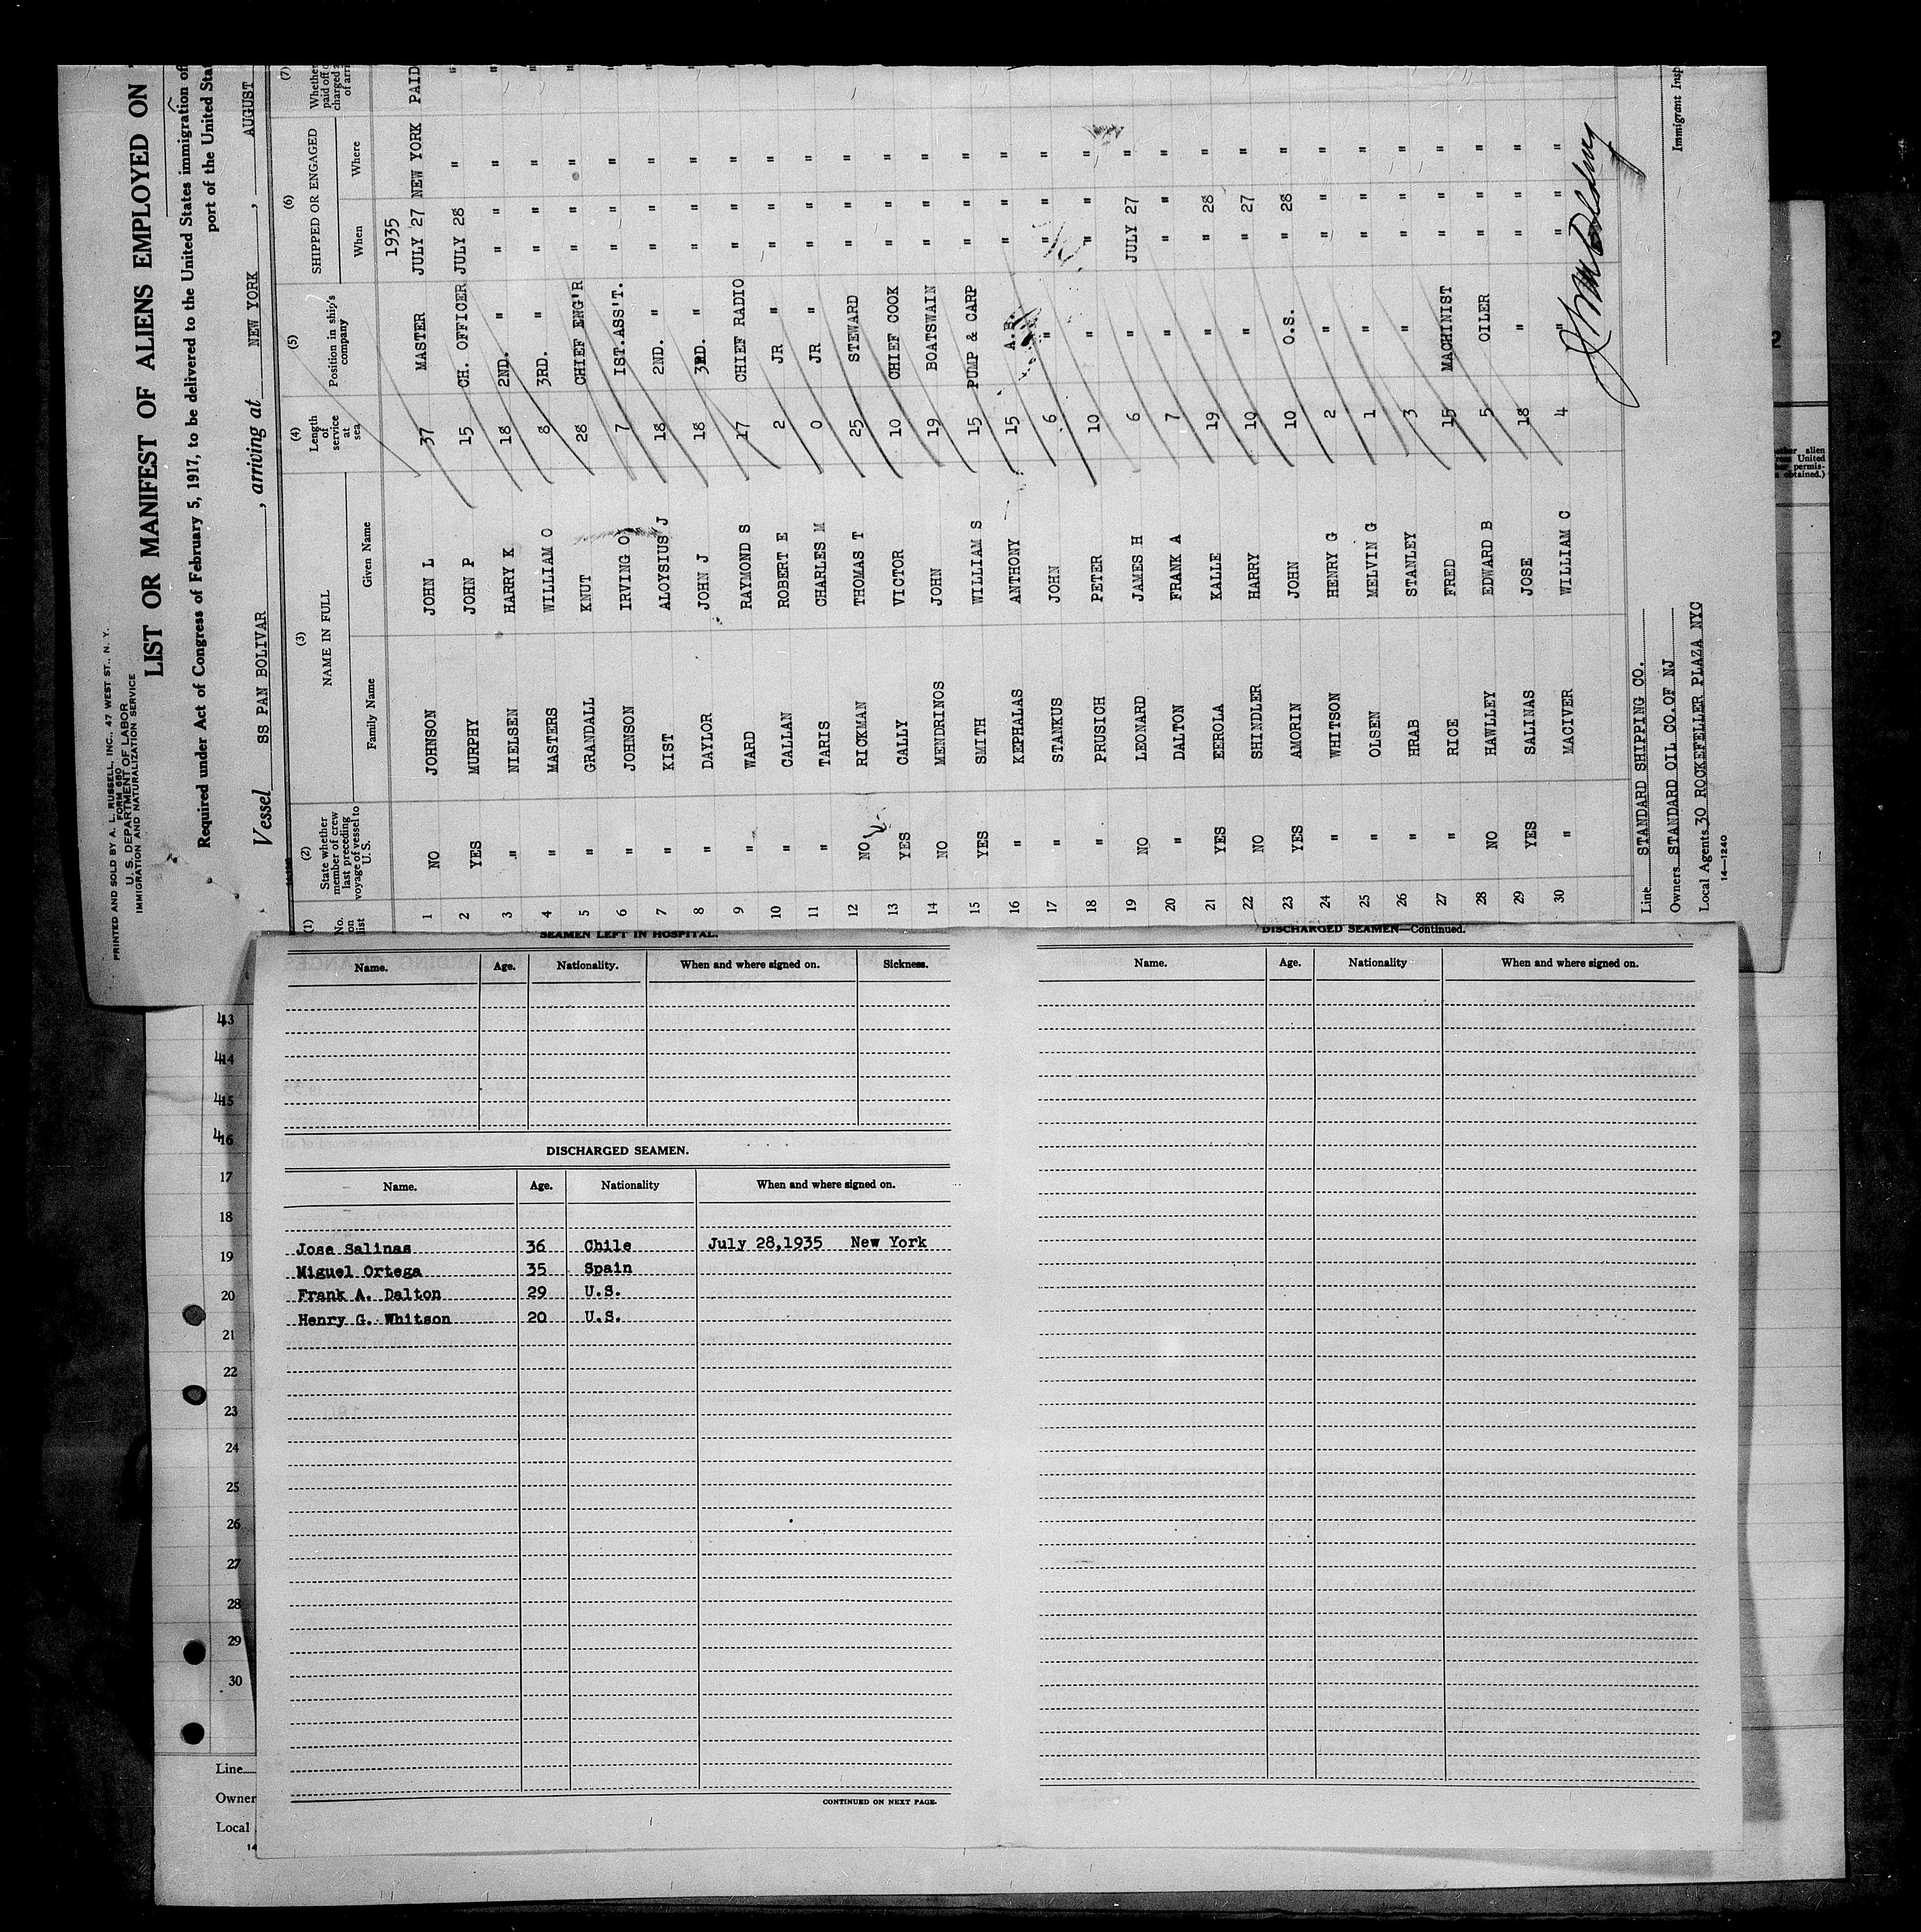 PRINTED AND SOLD BY A. L. RUSSELL, INC., 47 WEST ST., N. Y.
FORM 680
U. S. DEPARTMENT OF LABOR
IMMIGRATION AND NATURALIZATION SERVICE
LIST OR MANIFEST OF ALIENS EMPLOYED ON
Required under Act of Congress of February 5, 1917, to be delivered to the United States immigration of
port of the United Sta
Vessel SS PAN BOLIVAR, arriving at NEW YORK, AUGUST
(1) No. on list
(2) State whether member of crew last preceding voyage of vessel to U. S.
(3) NAME IN FULL
Family Name Given Name
(4) Length of service at sea
(5) Position in ship's company
(6) SHIPPED OR ENGAGED
When Where
(7) Whether paid off charged of arri
1935
1 NO JOHNSON JOHN L 37 MASTER JULY 27 NEW YORK PAID
2 YES MURPHY JOHN P 15 CH. OFFICER JULY 28 " "
3 " NIELSEN HARRY K 18 2ND. " " " " "
4 " MASTERS WILLIAM O 8 3RD. " " " " "
5 " GRANDALL KNUT 28 CHIEF ENG'R " " " "
6 " JOHNSON IRVING O 7 IST.ASS'T. " " " "
7 " KIST ALOYSIUS J 18 2ND. " " " " "
8 " DAYLOR JOHN J 18 3RD. " " " " "
9 " WARD RAYMOND S 17 CHIEF RADIO " " " "
10 " CALLAN ROBERT E 2 JR " " " "
11 " TARIS CHARLES M 0 JR " " " "
12 NO RICKMAN THOMAS T 25 STEWARD " " "
13 YES CALLY VICTOR 10 CHIEF COOK " " "
14 NO MENDRINOS JOHN 19 BOATSWAIN " " "
15 YES SMITH WILLIAM S 15 PUMP & CARP " " "
16 " KEPHALAS ANTHONY 15 A.B. " " "
17 " STANKUS JOHN 6 " " " "
18 " PRUSICH PETER 10 " " " "
19 NO LEONARD JAMES H 6 " JULY 27 "
20 " DALTON FRANK A 7 " " " "
21 YES EEROLA KALLE 19 " " 28 "
22 NO SHINDLER HARRY 19 " " 27 "
23 YES AMORIN JOHN 10 O.S. " 28 "
24 " WHITSON HENRY G 2 " " " "
25 " OLSEN MELVIN G 1 " " " "
26 " HRAB STANLEY 3 " " " "
27 " RICE FRED 15 MACHINIST " " "
28 NO HAWLLEY EDWARD B 5 OILER " " "
29 YES SALINAS JOSE 18 " " " "
30 " MACIVER WILLIAM C 4 " " " "
Line STANDARD SHIPPING CO.
Owners STANDARD OIL CO.OF NJ
Local Agents 30 ROCKEFELLER PLAZA NYC
14—1240
Immigrant Insp
ether alien
ross United
her permis-
s obtained.)
SEAMEN LEFT IN HOSPITAL.
Name. Age. Nationality. When and where signed on. Sickness.
DISCHARGED SEAMEN.
Name. Age. Nationality When and where signed on.
Jose Salinas 36 Chile July 28,1935 New York
Miguel Ortega 35 Spain
Frank A. Dalton 29 U.S.
Henry G. Whitson 20 U.S.
CONTINUED ON NEXT PAGE.
DISCHARGED SEAMEN—Continued.
Name. Age. Nationality When and where signed on.
17
18
19
20
21
22
23
24
25
26
27
28
29
30
Line
Owner
Local
14